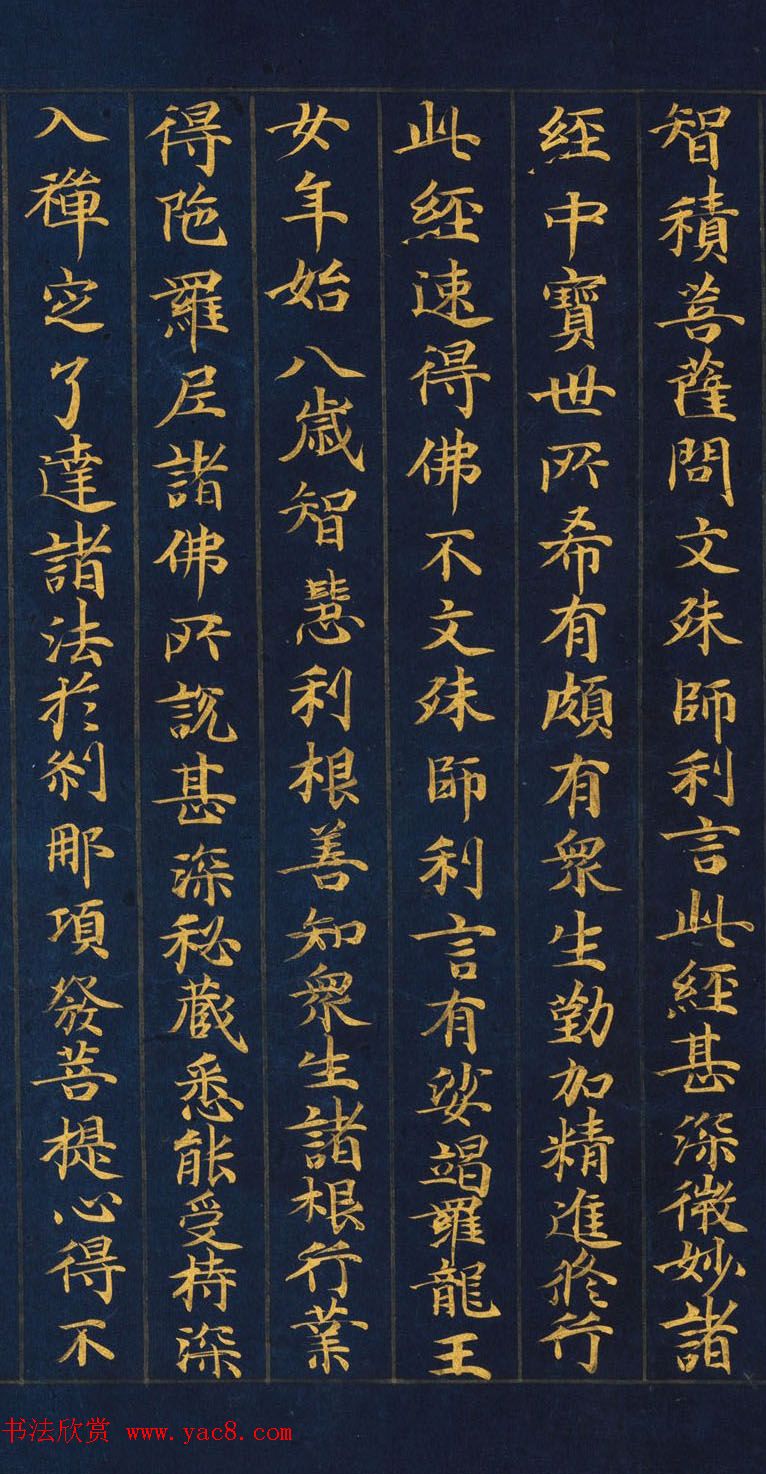 智積菩薩問文殊師利言此經甚深微妙諸
經中寶世所希有頗有衆生勤加精進修行
此經速得佛不文殊師利言有娑竭羅龍王
女年始八歲智慧利根善知衆生諸根行業
得陁羅尼諸佛所說甚深秘藏悉能受持深
入禪定了達諸法於刹那項發菩提心得不
书法欣赏 www.yac8.com